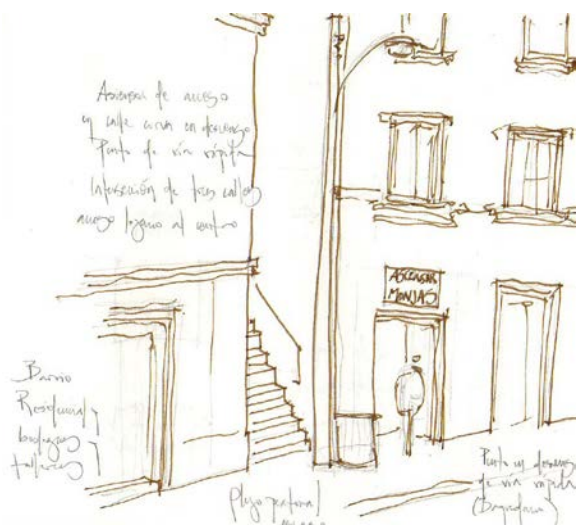 Ascensor de acceso
en calle curva en descenso
Punto de vía rápida
Intersección de tres calles
acceso lejano al centro
ASCENSOR
MONJAS
Barrio
Residencial
bodegas
talleres
Flujo peatonal
Punto en descenso
de vía rápida